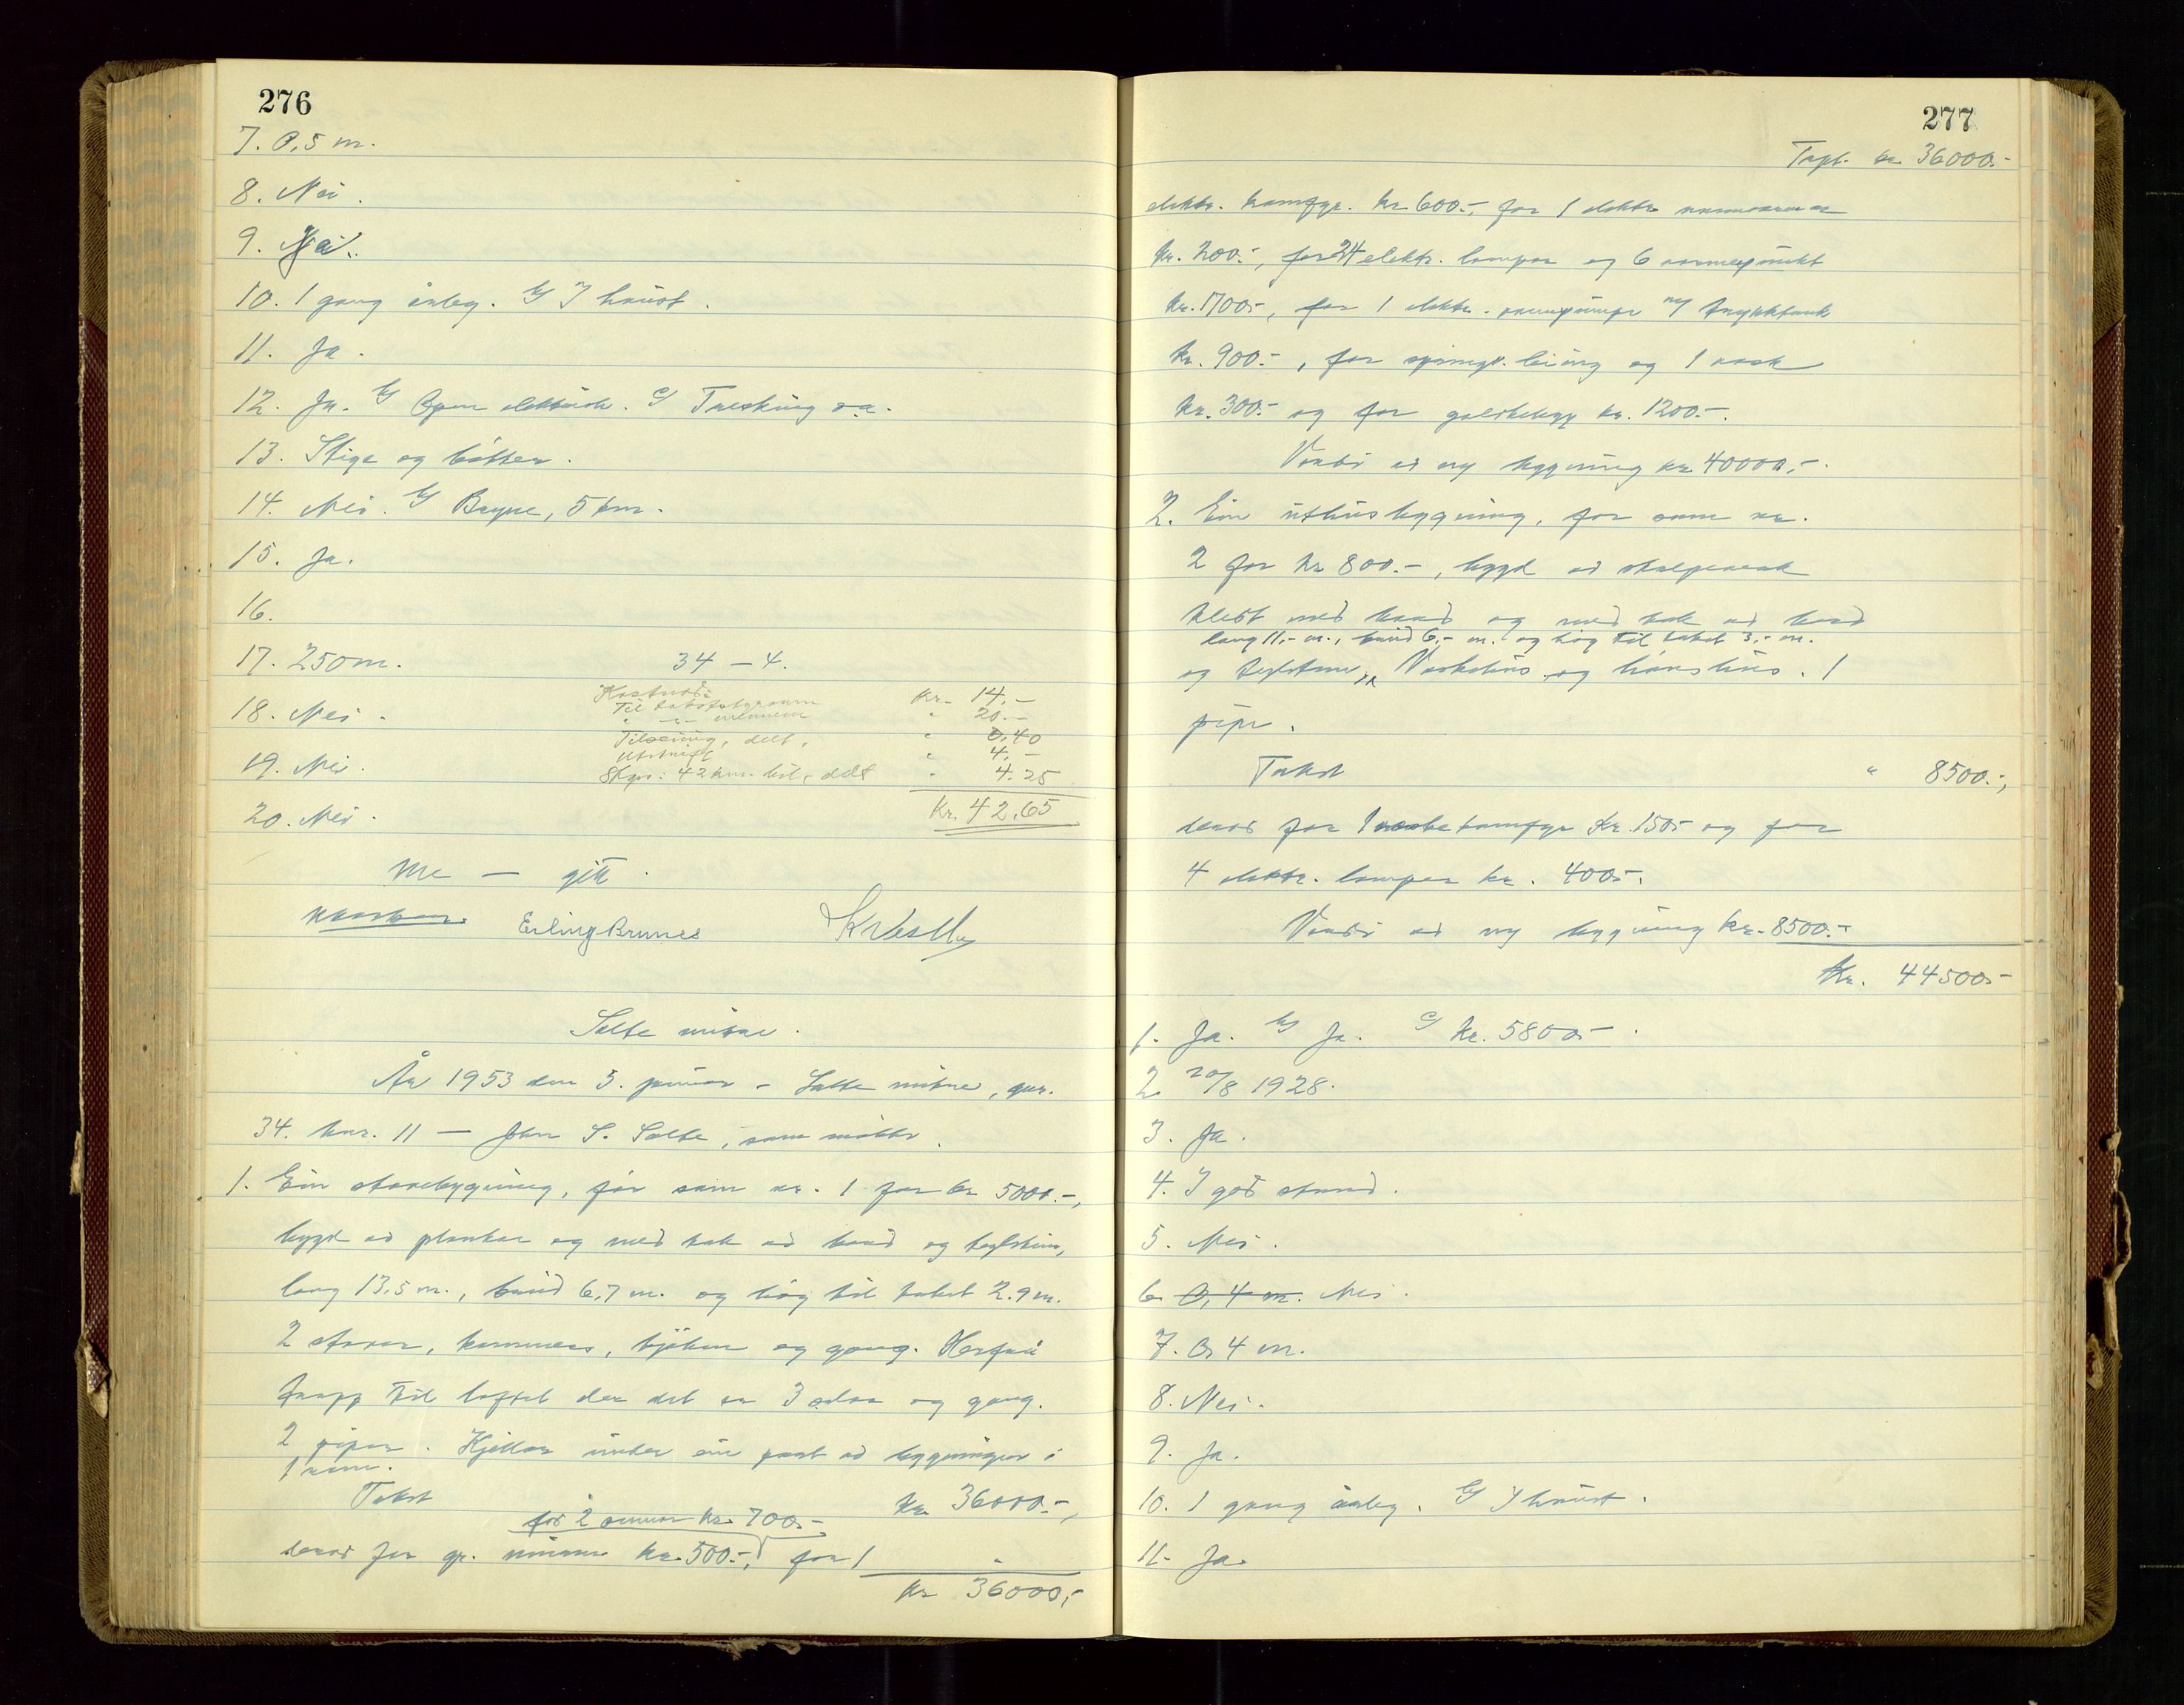 276
7. 0,5 m.
8. Nei.
9. Ja.
10. 1 gang årleg. b/ I haust.
11. Ja.
12. Ja. b/ Open elektrisk. c/ Tresking o.a.
13. Stige og bötter.
14. Nei. b/ Bryne, 5 km.
15. Ja.
16.
17. 250 m. 34 – 4.
Kostnad:
Til takststyraren kr. 14.–
" –"– mennene " 20.–
18. Nei.
Tilsening, delt, " 0,40
Utskrift " 4.–
19. Nei.
Skyss: 42 km. bil, delt " 4.25
20. Nei. Kr. 42.65
Me — gitt.
Erling Brunes
Salte nitre.
År 1953 den 5. januar – Salte nitre, gnr.
34. bnr. 11 — John S. Salte, som møtte.
1. Ein stovebygning, før som nr. 1 for kr 5000.–,
bygd av plankar og med tak av bord og teglstein,
lang 13,5 m., breid 6,7 m. og høg til taket 2.9 m.
2 stover, kammers, kjøken og gang. Herfrå
trapp til loftet der det er 3 rom og gang.
2 piper. Kjellar under ein part av bygningen i
1 rom.
Takst kr. 36000.–,
for 2 omnar kr. 700.–
derav for gr. muren kr. 500.–, for 1
kr 36000,–
277
Trpt. kr. 36000.–
elektr. komfyr. kr 600.–, for 1 elektr.
kr. 200.–, for 24 elektr. lamper og 6 varmepunkt
kr. 1700.–, for 1 elektr. vasspumpe m/ trykktank
kr. 900.–, for springv. leiing og 1 vask
kr. 300.– og for golvbelegg kr. 1200.–.
Verdi av ny bygning kr. 40000,–.
2. Ein uthusbygning, før som nr.
2 for kr 800.–, bygd av stolpeverk
kledt med bord og med tak av bord
lang 11,– m., breid 6,– m. og høg til taket 3,– m.
og teglstein, Vaskehus og hønshus. 1
pipe.
Takst " 8500.–,
derav for 1 komfyr kr. 150.– og for
4 elektr. lamper kr. 400.–.
Verdi av ny bygning kr. 8500.–
Kr. 44500.–
1. Ja. b/ Ja. c/ kr. 5800.–.
2. 20/8 1928.
3. Ja.
4. I god stand.
5. Nei.
6. 0,4 m. Nei.
7. 0,4 m.
8. Nei.
9. Ja.
10. 1 gang årleg. b/ I haust.
11. Ja.